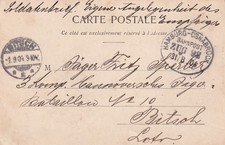 Soldatenbrief. Eigene Angelegenheit des
Empfängers
CARTE POSTALE
Ce côté est exclusivement réservé à l'adresse
HAMBURG-
BAHNPOST
ZUG
BITSCH
Jäger Fritz
3 Komp. Hannoversches Jäger
Bataillon No 10
Bitsch
Lothr.